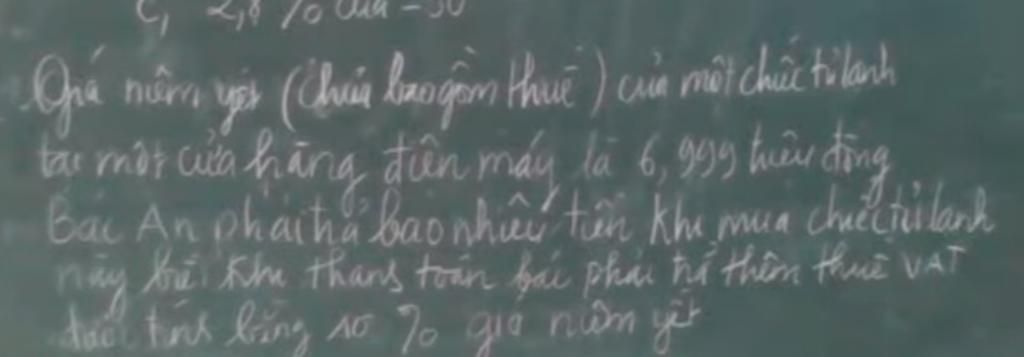 c, 2,8 % của - 30
Giá niêm yết (chưa bao gồm thuế) của một chiếc tủ lạnh
tại một cửa hàng điện máy là 6,999 triệu đồng
Bác An phải trả bao nhiêu tiền khi mua chiếc tủ lạnh
này biết khi thanh toán bác phải trả thêm thuế VAT
được tính bằng 10 % giá niêm yết